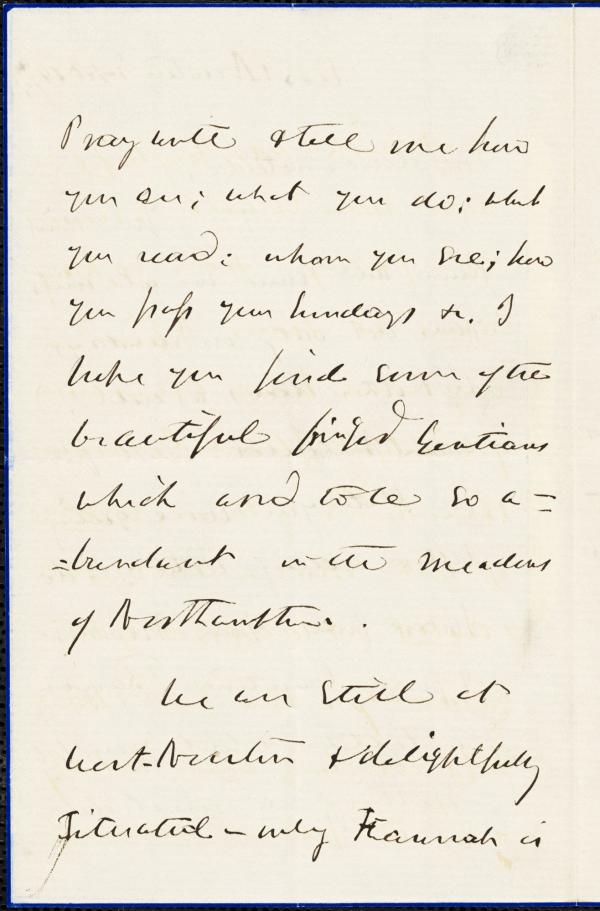 Pray write & tell me how
you are; what you do; what
you read; whom you see; how
you pass your Sundays &c. I
hope you find some of the
beautiful fringed Gentians
which used to be so a=
=bundant in the meadows
of Northampton.
We are still at
West-Newton & delightfully
situated – only Hannah is